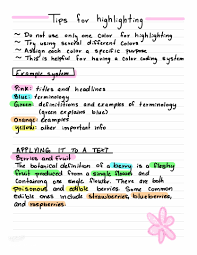 Tips for highlighting
~ Do not use only one color for highlighting
~ Try using several different colors
~ Assign each color a specific purpose
~ This is helpful for having a color coding system
Example system
Pink: titles and headlines
Blue: terminology
Green: definitions and examples of terminology
(green explains blue)
Orange: examples
yellow: other important info
APPLYING IT TO A TEXT
Berries and fruit
The botanical definition of a berry is a fleshy
fruit produced from a single flower and
containing one single
There are both
poisonous and edible berries. Some common
edible ones include strawberries, blueberries,
and raspberries.